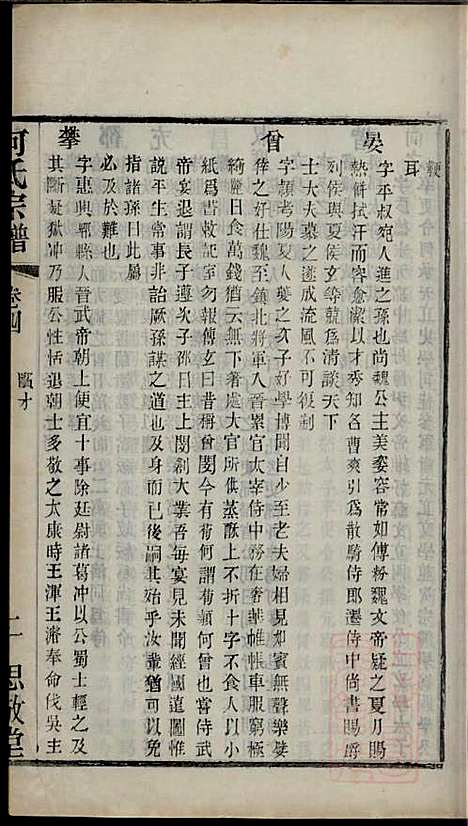 鞕耳
晏
字平叔宛人進之孫也尚魏公主美姿容常如傅粉魏文帝疑之夏月賜
熱餠拭汗而容愈潔以才秀知名曹爽引爲散騎侍郎遷侍中尚書賜爵
列侯與夏侯玄等競爲清談天下
士大夫慕之遂成流風不可復制
曾
字穎考陽夏人夔之次子好學博聞自少至老夫婦相見如賓無聲樂嬖
倖之好仕魏至鎮北將軍入晉累官太宰侍中務在奢華帷帳車服窮極
綺麗日食萬錢猶云無下著處大官所供蒸餅上不折十字不食人以小
紙爲書敕記室勿報傅玄曰昔稱曾閔今有荀何謂荀顗何曾也侍武
帝宴退謂長子邵曰主上開創大業吾每宴見未聞經國遠圖惟
說平生常事非詒厥孫謀之道也及身而已後嗣其始乎汝輩猶可以免
必及於難也
指諸孫曰此屬
攀
字惠興郫縣人晉武帝朝上便宜十事除廷尉諸葛沖以公蜀士輕之及
其斷疑獄沖乃服公性恬退朝士多敬之太康時王渾王濬奉命伐吳主
何氏宗譜
卷四
甌才
二
思敬堂